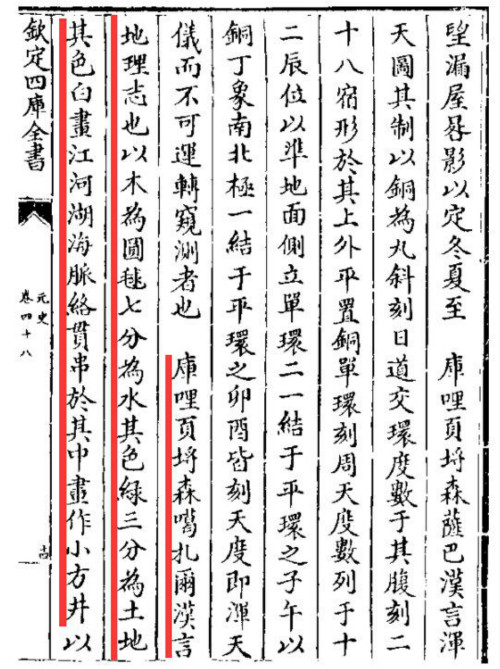 朢漏屋晷影以定冬夏至　庫哩頁埒森薩巴漢言渾
天圖其制以銅為丸斜刻日道交環度數于其腹刻二
十八宿形於其上外平置銅單環刻周天度數列于十
二辰位以準地面側立單環二一結于平環之子午以
銅丁象南北極一結于平環之卯酉皆刻天度即渾天
儀而不可運轉窺測者也　庫哩頁埒森噶扎爾漢言
地理志也以木為圓毬七分為水其色綠三分為土地
其色白畫江河湖海脈絡貫串於其中畫作小方井以
欽定四庫全書
元史
卷四十八